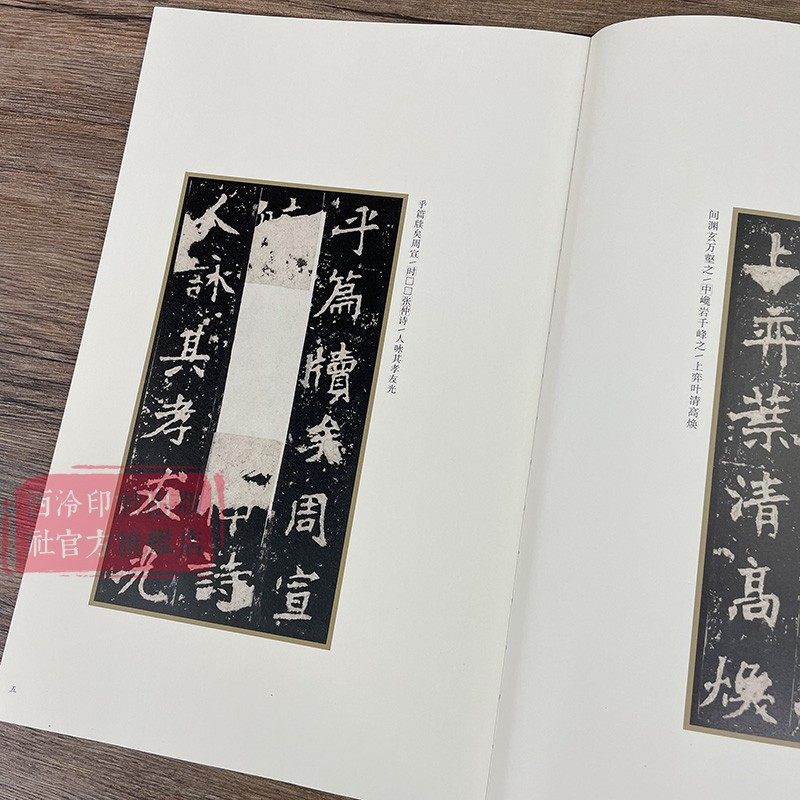 上弈葉清高煥
间渊玄万壑之/中巉岩千峰之/上弈叶清高焕
乎篇牘矣周宣
仲詩
人詠其孝友光
乎篇牍矣周宣/时□□张仲诗/人咏其孝友光
五
西泠印
社官方